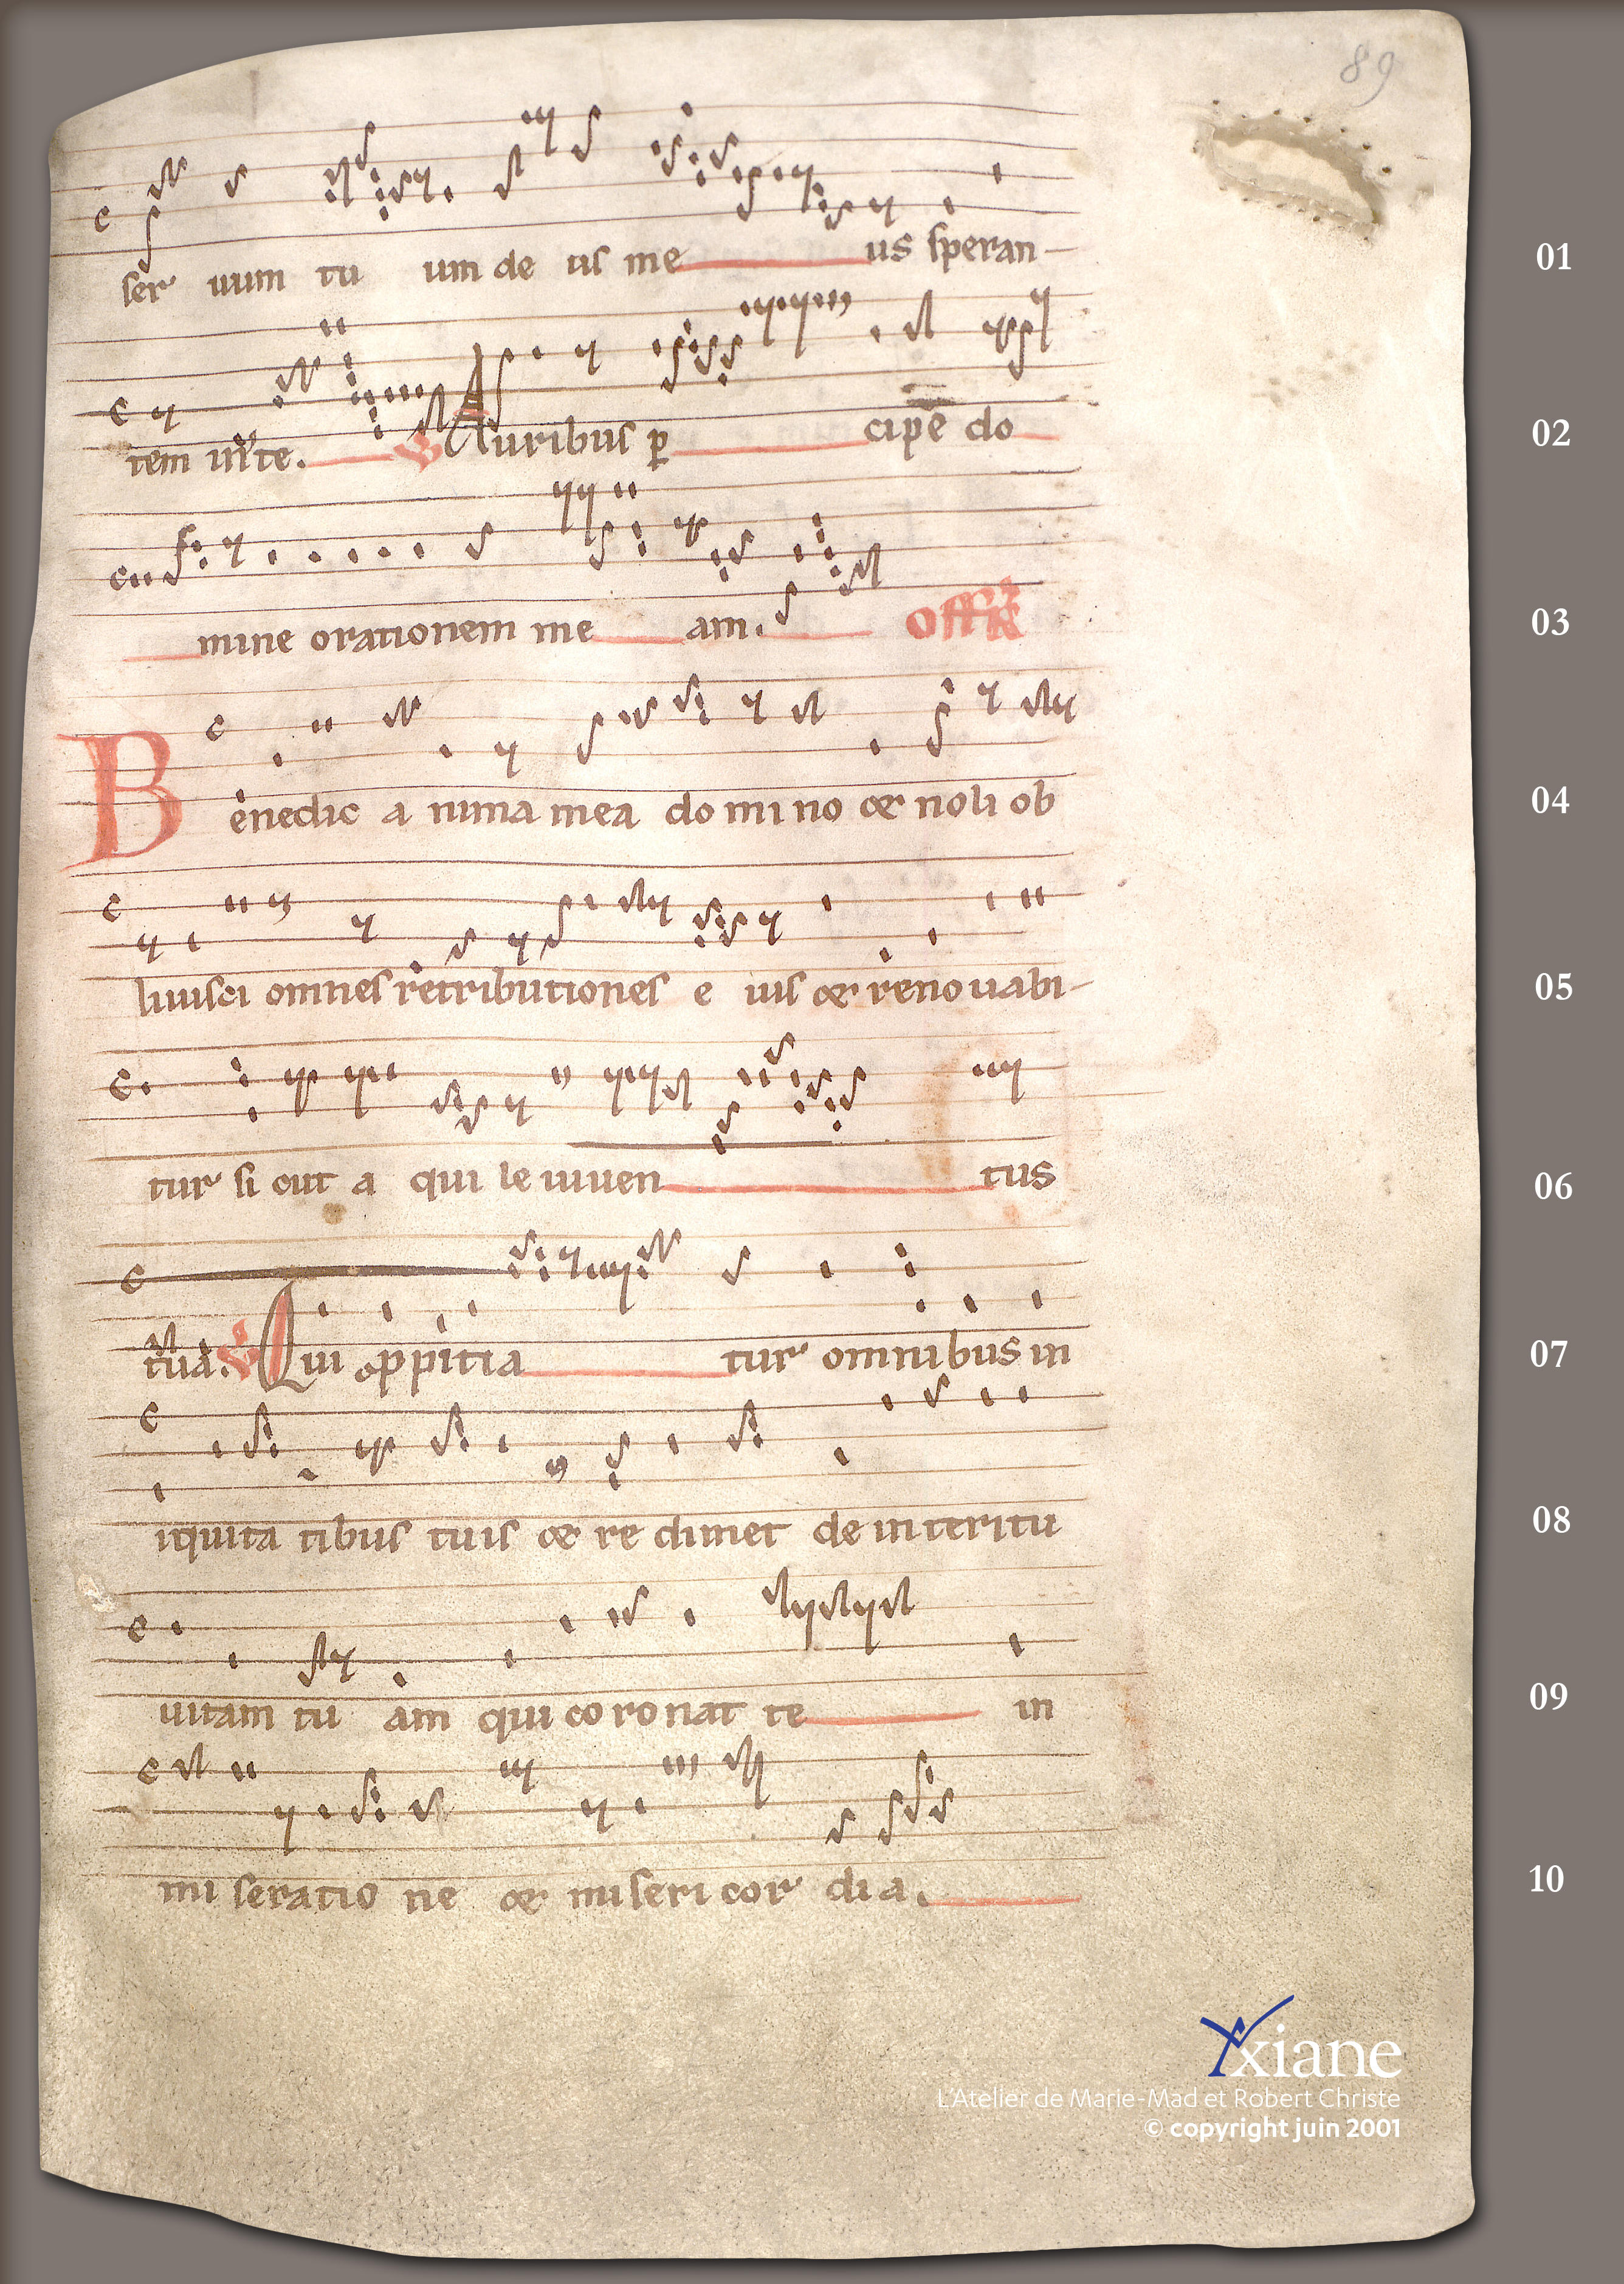 89
ser uum tu um de us me us speran- 01
tem in te. ℣ Auribus ꝑ cipe do 02
mine orationem me am. Offr 03
Benedic a nima mea domino et noli ob 04
liuisci omnes retributiones e ius et renouabi- 05
tur si cut a qui le iuuen tus 06
tua. ℣ Qui ꝓpitia tur omnibus in 07
iquita tibus tuis et re dimet de interitu 08
uitam tu am qui coronat te in 09
mi seratio ne et miseri cor di a. 10
Yxiane
L'Atelier de Marie-Mad et Robert Christe
© copyright juin 2001